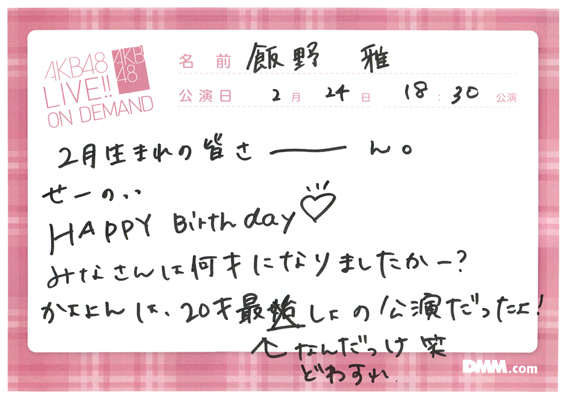 AKB48
LIVE!!
ON DEMAND
AKB
48
名前 飯野 雅
公演日 2月 24日 18:30公演
2月生まれの皆さ――ん。
せーの、、
HAPPY Birthday♡
みなさんは何才になりましたかー?
かよよんは、20才最始しょの公演だったよ!
↑なんだっけ 笑
どわすれ
DMM.com